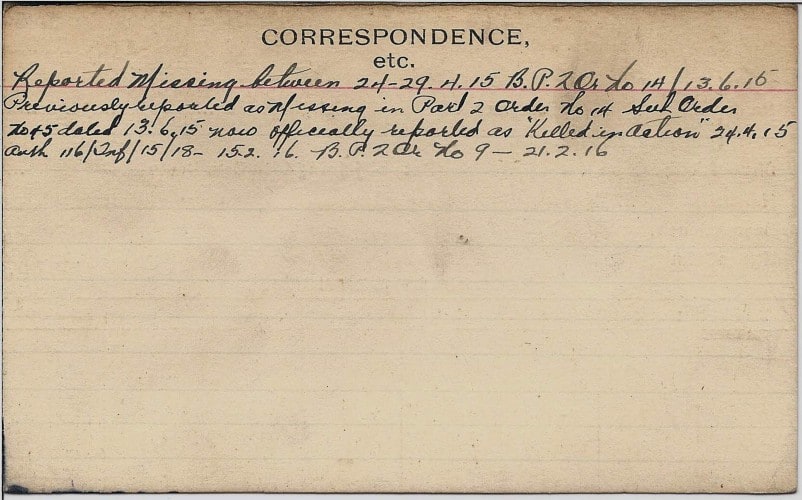 CORRESPONDENCE,
etc.
Reported Missing between 24-29.4.15 B.P.2 Or No 14/13.6.15
Previously reported as Missing in Part 2 Order No 14 Sub Order
No 45 dated 13.6.15 now officially reported as "Killed in action" 24.4.15
Auth 116/Inf/15/18- 15.2.16. B.P.2 Or No 9 - 21.2.16